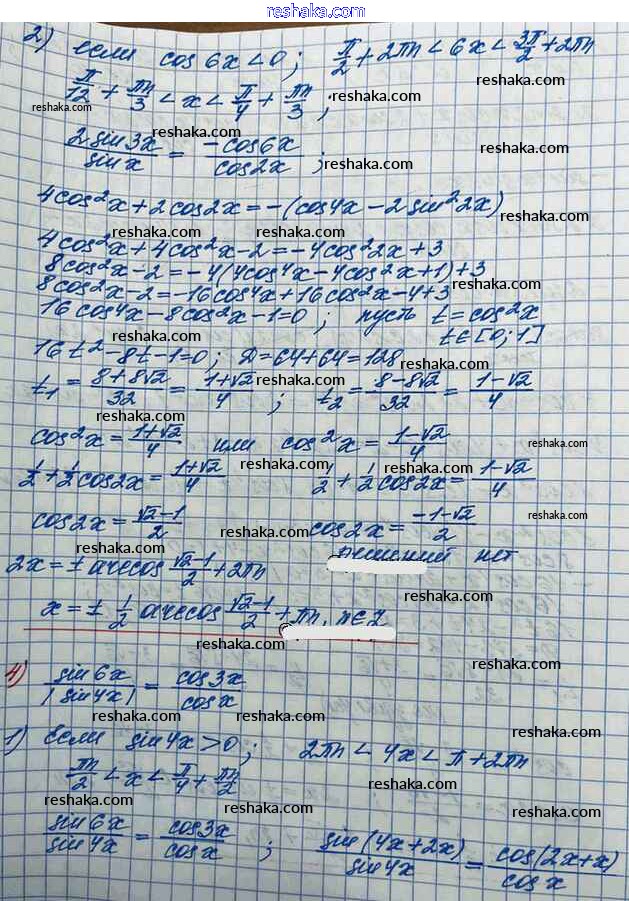 reshaka.com
2) если cos 6x < 0; π/2 + 2πn < 6x < 3π/2 + 2πn
π/12 + πn/3 < x < π/4 + πn/3;
2 sin 3x / sin x = -cos 6x / cos 2x;
4cos²x + 2cos2x = -(cos4x - 2sin²2x)
4cos²x + 4cos²x - 2 = -4cos²2x + 3
8cos²x - 2 = -4(4cos⁴x - 4cos²x + 1) + 3
8cos²x - 2 = -16cos⁴x + 16cos²x - 4 + 3
16cos⁴x - 8cos²x - 1 = 0; пусть t = cos²x
t ∈ [0; 1]
16t² - 8t - 1 = 0; D = 64 + 64 = 128
t₁ = (8+8√2)/32 = (1+√2)/4; t₂ = (8-8√2)/32 = (1-√2)/4
cos²x = (1+√2)/4 или cos²x = (1-√2)/4
1/2 + 1/2 cos2x = (1+√2)/4 1/2 + 1/2 cos2x = (1-√2)/4
cos2x = (√2-1)/2 cos2x = (-1-√2)/2
решений нет
2x = ± arccos (√2-1)/2 + 2πn
x = ± 1/2 arccos (√2-1)/2 + πn, n ∈ Z
4) sin 6x / |sin 4x| = cos 3x / cos x
1) Если sin 4x > 0; 2πn < 4x < π + 2πn
πn/2 < x < π/4 + πn/2
sin 6x / sin 4x = cos 3x / cos x; sin(4x+2x) / sin 4x = cos(2x+x) / cos x